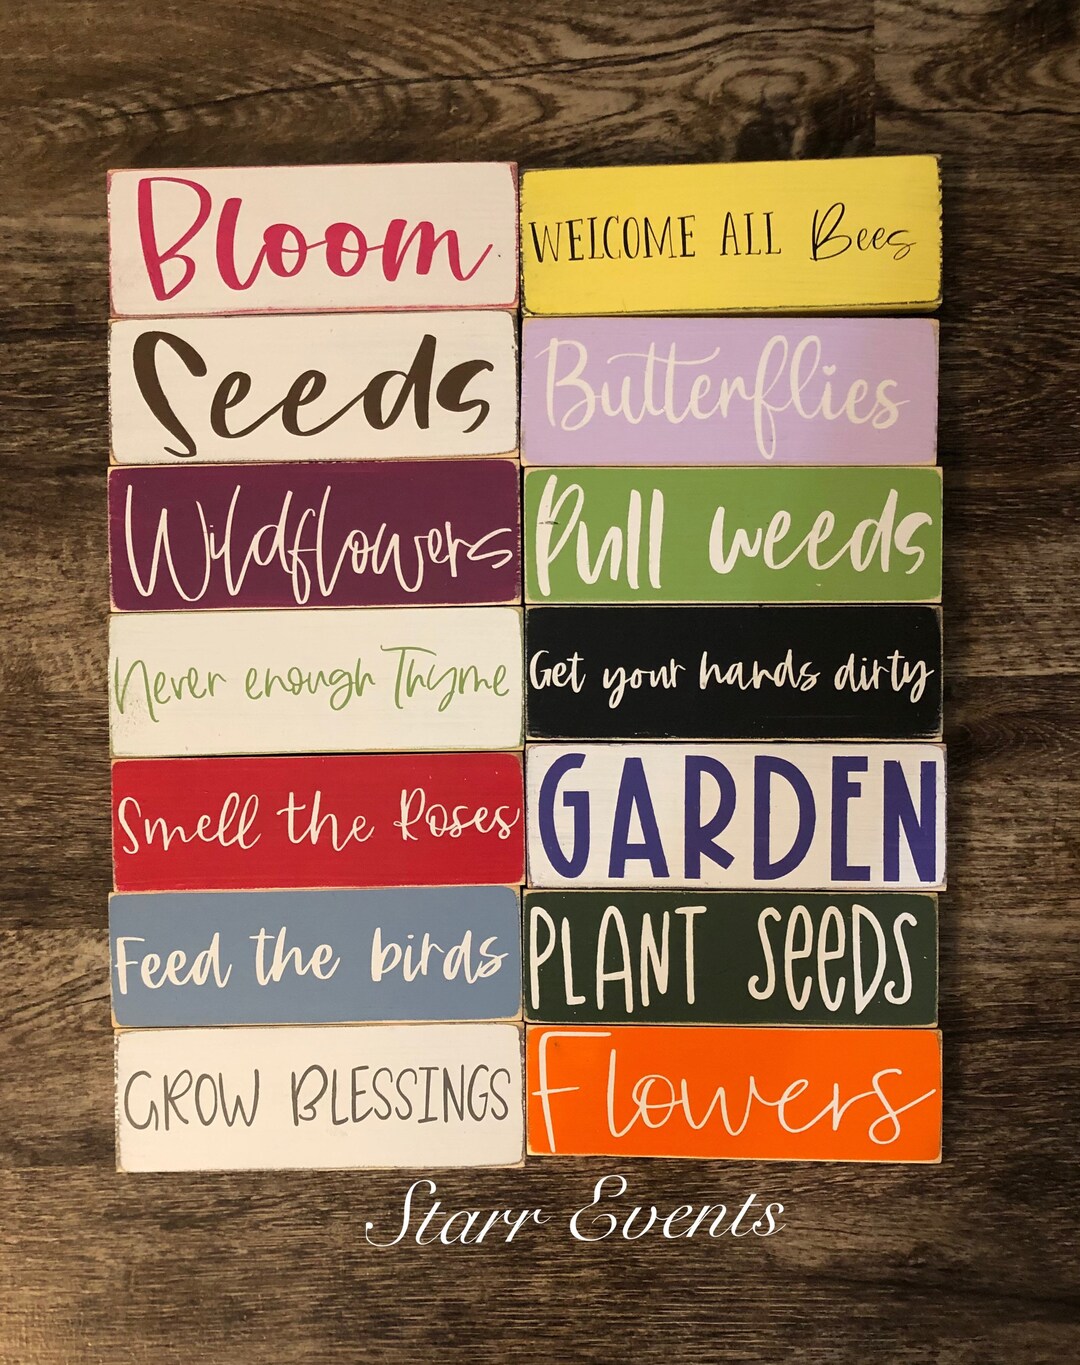 Bloom
WELCOME ALL Bees
Seeds
Butterflies
Wildflowers
Pull weeds
Never enough Thyme
Get your hands dirty
Smell the Roses
GARDEN
Feed the birds
PLANT SeeDS
GROW BLESSINGS
Flowers
Starr Events